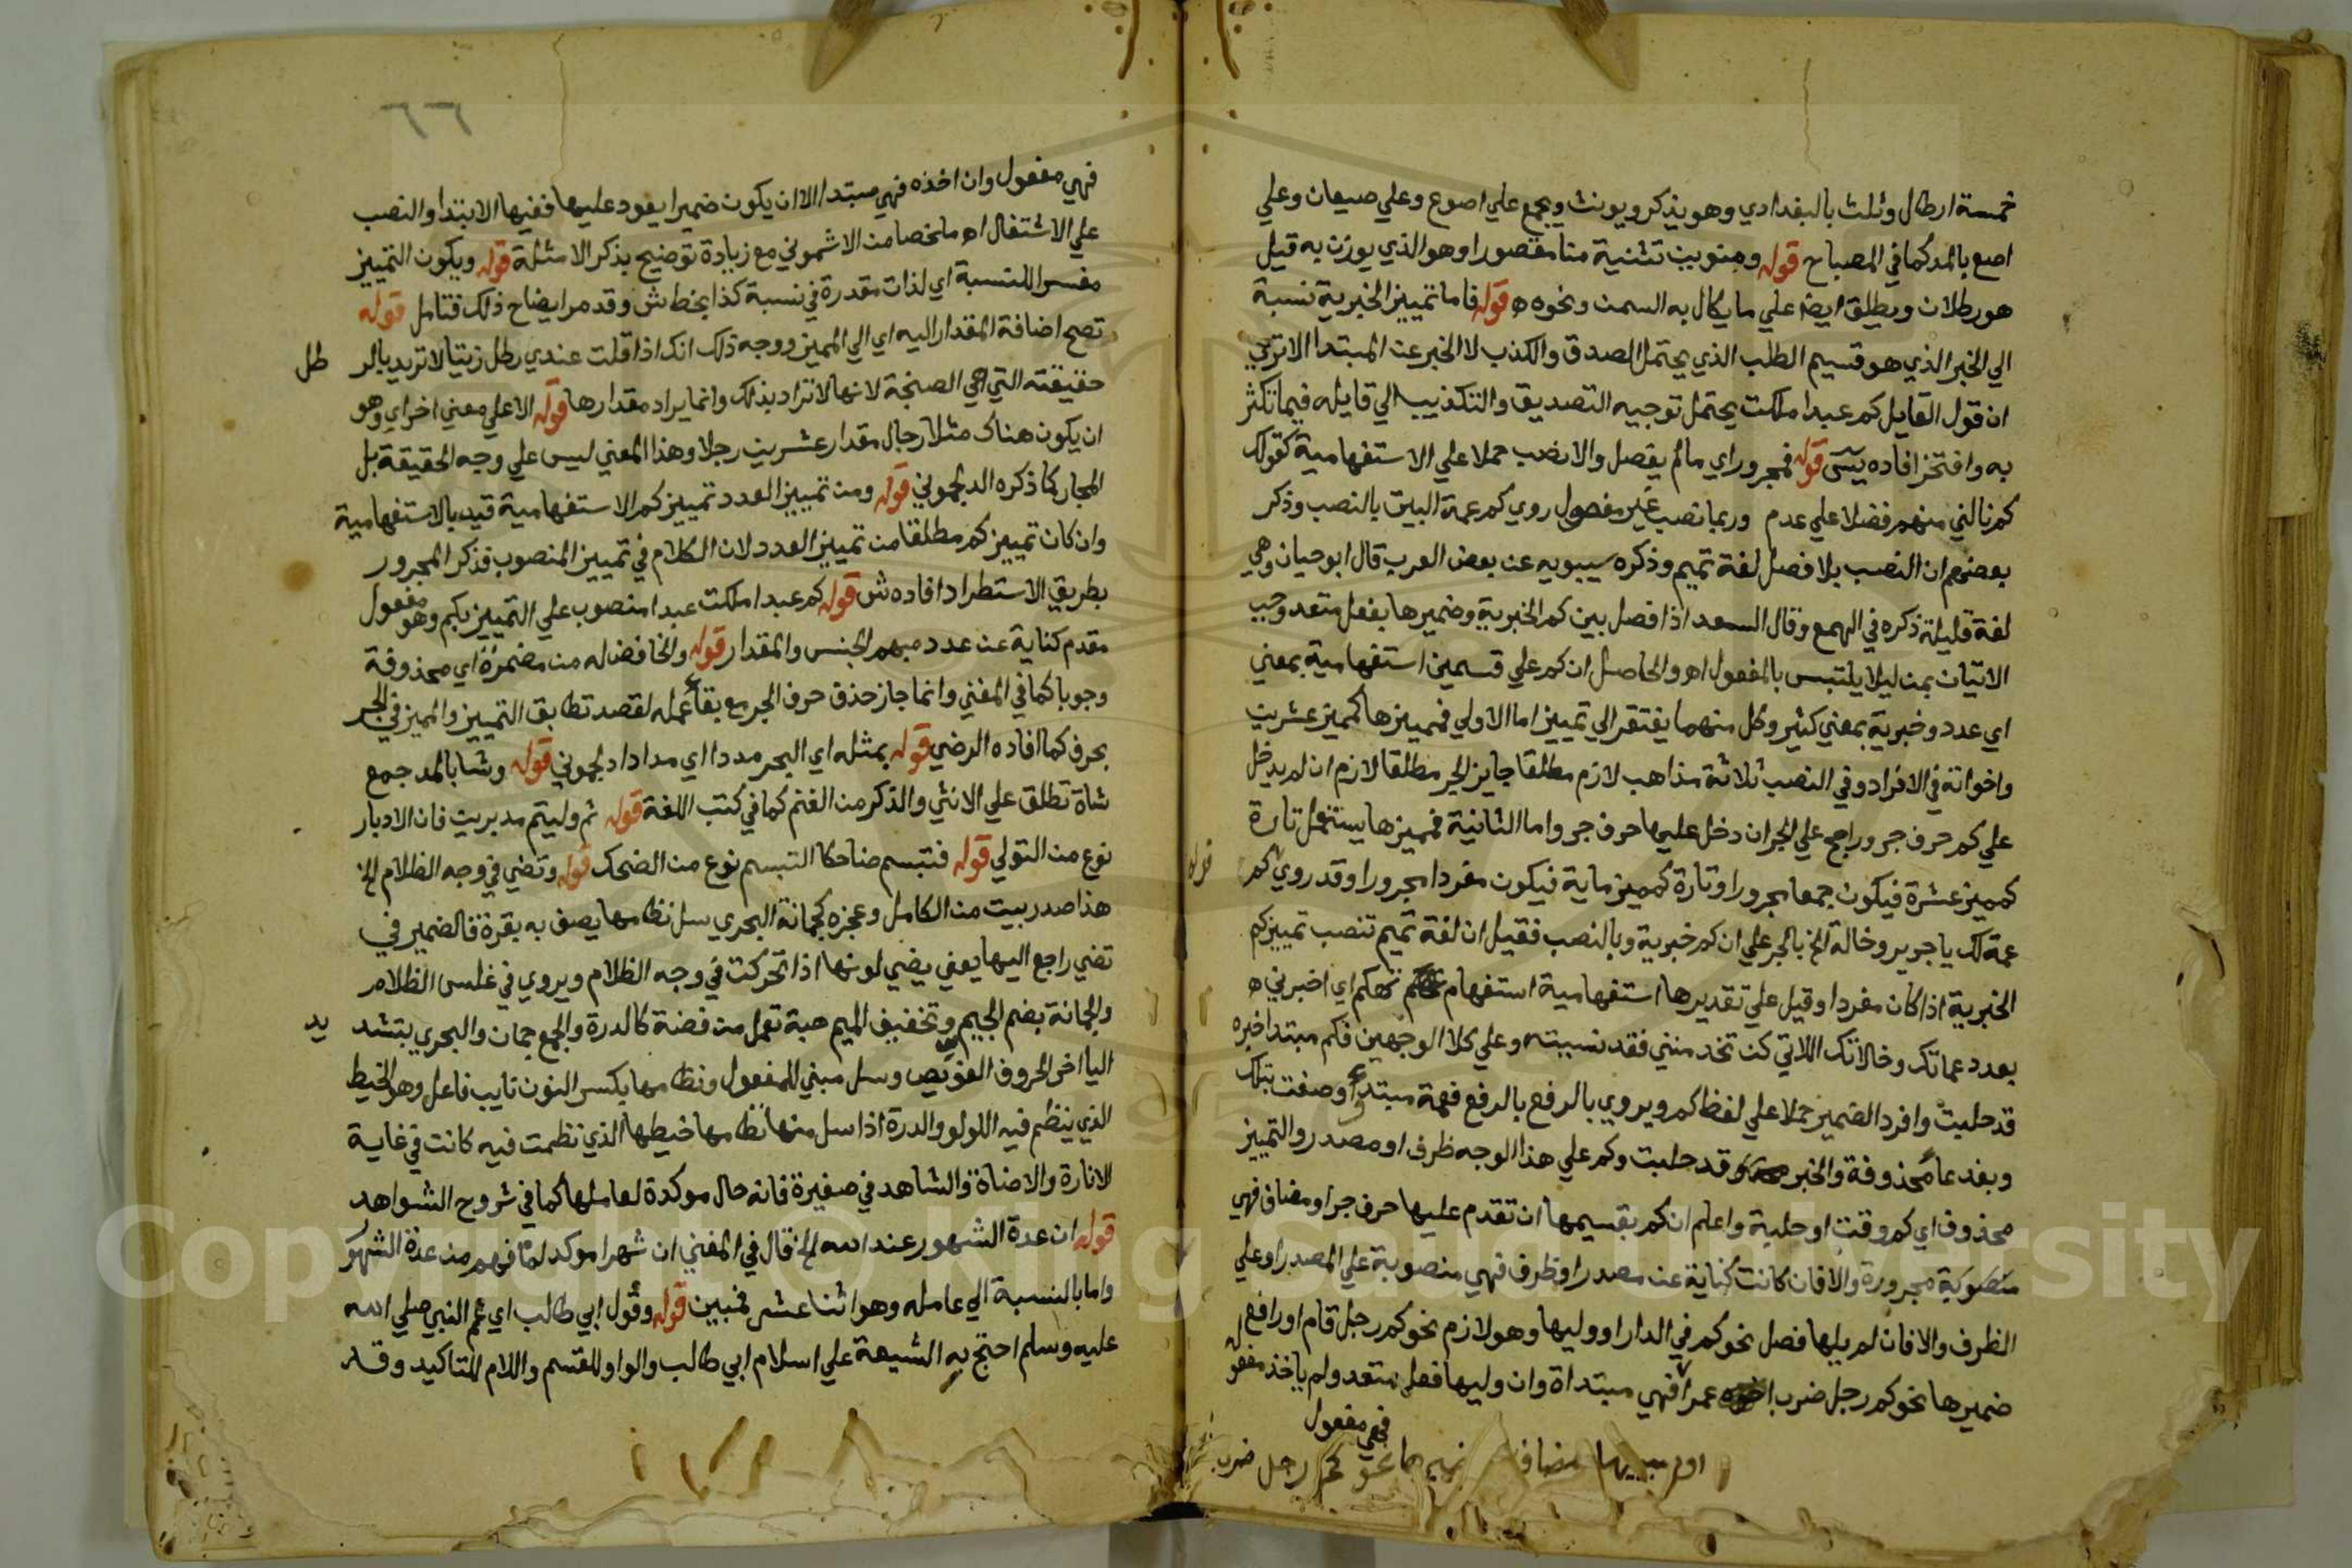 خمسة ارطال وثلث بالبغدادي وهو يذكر ويونث ويجمع علي اصوع وعلي صيعان وعلي
اصع بالمد كما في المصباح قوله ومنوين تثنية منا مقصورا وهو الذي يوزن به قيل
هو رطلان ويطلق ايضا علي ما يكال به السمن ونحوه ه قوله فاما تمييز الخبرية نسبة
الي الخبر الذي هو قسيم الطلب الذي يحتمل الصدق والكذب لا الخبر عن المبتدا الا ترى
ان قول القايل كم عبدا ملكت يحتمل توجيه التصديق والتكذيب الي قايله فيما تكثر
به وافتخر افاده يس قوله فمجرور اي ما لم يفصل والا نصب حملا علي الاستفهامية كقولك
كم نالني منهم فضلا علي عدم وربما نصب غير مفصول روي كم عمة البيت بالنصب وذكر
بعضهم ان النصب بلا فصل لغة تميم وذكره سيبويه عن بعض العرب قال ابو حيان وهي
لغة قليلة ذكره في الهمع وقال السعد اذا فصل بين كم الخبرية وضميرها بفعل متعد وجب
الاتيان بمن ليلا يلتبس بالمفعول اه والحاصل ان كم علي قسمين استفهامية بمعني
اي عدد وخبرية بمعني كثير وكل منهما يفتقر الي تمييز اما الاولي فمميزها كمميز عشرين
واخواته في الافراد وفي النصب ثلاثة مذاهب لازم مطلقا جايز الجر مطلقا لازم ان لم يدخل
علي كم حرف جر وراجح علي الجر ان دخل عليها حرف جر واما الثانية فمميزها يستعمل تارة
كمميز عشرة فيكون جمعا مجرورا وتارة كمميز ماية فيكون مفردا مجرورا وقد روي كم
قوله
عمة لك يا جرير وخالة الخ بالجر علي ان كم خبرية وبالنصب فقيل ان لغة تميم تنصب تمييز كم
الخبرية اذا كان مفردا وقيل علي تقديرها استفهامية استفهام تهكم اي اخبرني ه
بعدد عماتك وخالاتك اللاتي كن تخدمنني فقد نسيته وعلي كلا الوجهين فكم مبتدا خبره
قد حلبت وافرد الضمير حملا علي لفظ كم ويروي بالرفع بالرفع فعمة مبتدا وصفت بتلك
وبفدعا محذوفة والخبر قد حلبت وكم علي هذا الوجه ظرف او مصدر والتمييز
محذوف اي كم وقت او حلبة واعلم ان كم بقسيمها ان تقدم عليها حرف جر او مضاف فهي
مجرورة والا فان كانت كناية عن مصدر او ظرف فهي منصوبة علي المصدر او علي
الظرف والا فان لم يلها فصل نحو كم في الدار او وليها وهو لازم نحو كم رجل قام او رافع
ضميرها نحو كم رجل ضرب عمرا فهي مبتداة وان وليها فعل متعد ولم ياخذ مفعو له
فهي مفعول
نحو كم رجل ضرب
٦٦
فهي مفعول وان اخذه فهي مبتدا الا ان يكون ضميرا يعود عليها ففيها الابتدا والنصب
علي الاشتغال اه ملخصا من الاشموني مع زيادة توضيح بذكر الامثلة قوله ويكون التمييز
مفسرا للنسبة اي لذات مقدرة في نسبة كذا بخط ش وقد مر ايضاح ذلك فتامل قوله
تصح اضافة المقدار اليه اي الي المميز ووجه ذلك انك اذا قلت عندي رطل زيتا لا تريد بالر طل
حقيقته التي هي الصنجة لانها لا تراد بذلك وانما يراد مقدارها قوله الا علي معني اخر اي وهو
ان يكون هناك مثلا رجال مقدار عشرين رجلا وهذا المعني ليس علي وجه الحقيقة بل
المجاز كما ذكره الدلجموني قوله ومن تمييز العدد تمييز كم الاستفهامية قيد بالاستفهامية
وان كان تمييز كم مطلقا من تمييز العدد لان الكلام في تمييز المنصوب فذكر المجرور
بطريق الاستطراد افاده ش قوله كم عبدا ملكت عبدا منصوب علي التمييز بكم وهو مفعول
مقدم كناية عن عدد مبهم الجنس والمقدار قوله والخافض له من مضمرة اي محذوفة
وجوبا كما في المغني وانما جاز حذف حرف الجر مع بقاء عمله لقصد تطابق التمييز والمميز في الجر
بحرف كما افاده الرضي قوله بمثله اي البحر مددا اي مدادا دلجموني قوله وشا بالمد جمع
شاة تطلق علي الانثي والذكر من الغنم كما في كتب اللغة قوله ثم وليتم مدبرين فان الادبار
نوع من التولي قوله فتبسم ضاحكا التبسم نوع من الضحك قوله وتضي في وجه الظلام الخ
هذا صدر بيت من الكامل وعجزه كجمانة البحري سل نظامها يصف به بقرة فالضمير في
تضي راجع اليها يعني يضي لونها اذا تحركت في وجه الظلام ويروي في غلس الظلام
والجمانة بضم الجيم وتخفيف الميم حبة تعمل من فضة كالدرة والجمع جمان والبحري بتشد يد
اليا اخر الحروف الغويص وسل مبني للمفعول ونظامها بكسر النون نايب فاعل وهو الخيط
الذي ينظم فيه اللولو والدرة اذا سل منها نظامها خيطها الذي نظمت فيه كانت في غاية
الانارة والاضاة والشاهد في صغيرة فانه حال موكدة لعاملها كما في شروح الشواهد
قوله ان عدة الشهور عند الله الخ قال في المغني ان شهرا موكد لما فهم من عدة الشهور
واما بالنسبة الي عامله وهو اثنا عشر فمبين قوله وقول ابي طالب اي عم النبي صلي الله
عليه وسلم احتج به الشيعة علي اسلام ابي طالب والواو للقسم واللام للتاكيد وقد
Copyright © King Saud University